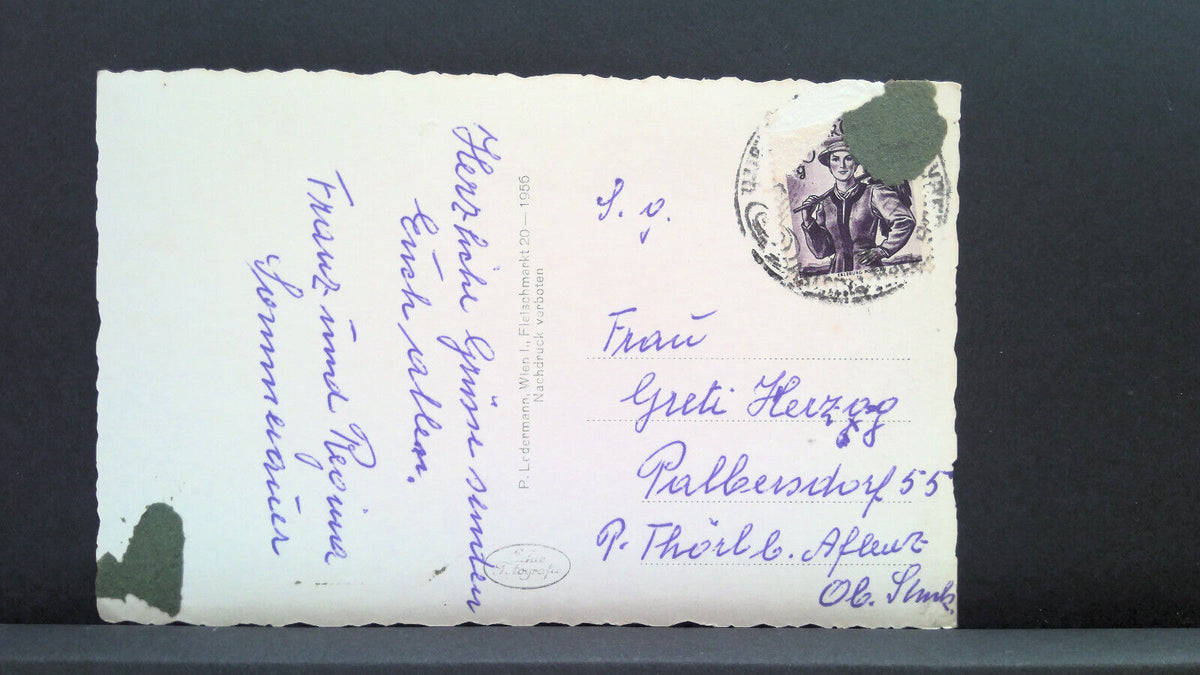 Herzliche Grüsse senden
Euch allen.
Franz und Regina
Sommerauer
P. Ledermann, Wien I., Fleischmarkt 20—1956
Nachdruck verboten
Echte
Fotografie
S. g.
Frau
Greti Herzog
Palbersdorf 55
P. Thörl b. Aflenz
Ob. Stmk.